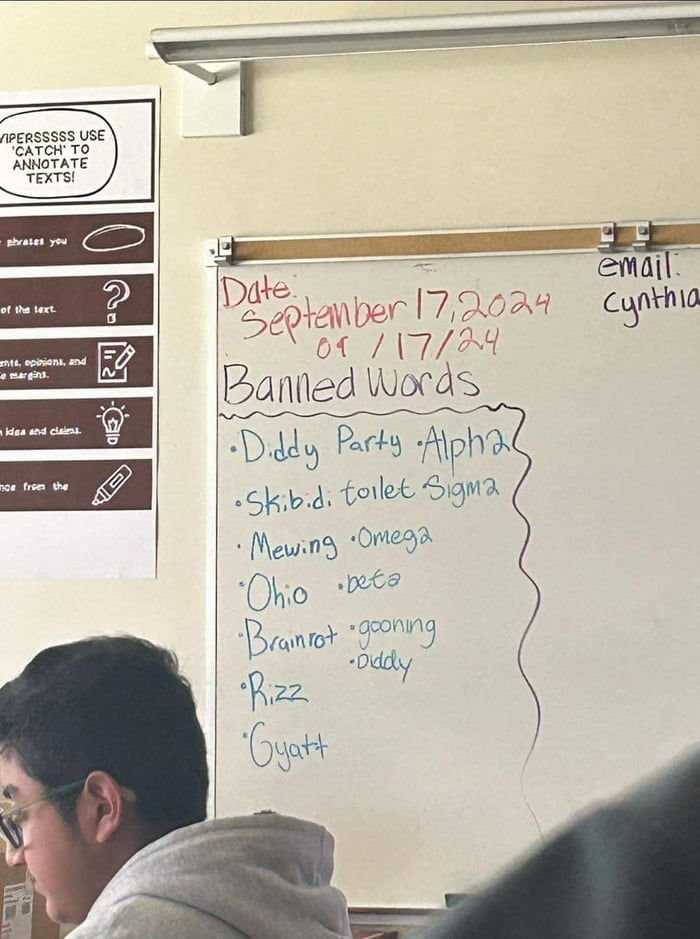 VIPERSSSSS USE
'CATCH' TO
ANNOTATE
TEXTS!
phrases you
of the text.
?
ents, opinions, and
e margins.
idea and claims.
nce from the
Date:
September 17, 2024
09/17/24
email:
Cynthia
Banned Words
•Diddy Party •Alpha
•Skibidi toilet Sigma
•Mewing •Omega
•Ohio •beta
•Brainrot •gooning
•Diddy
•Rizz
•Gyatt